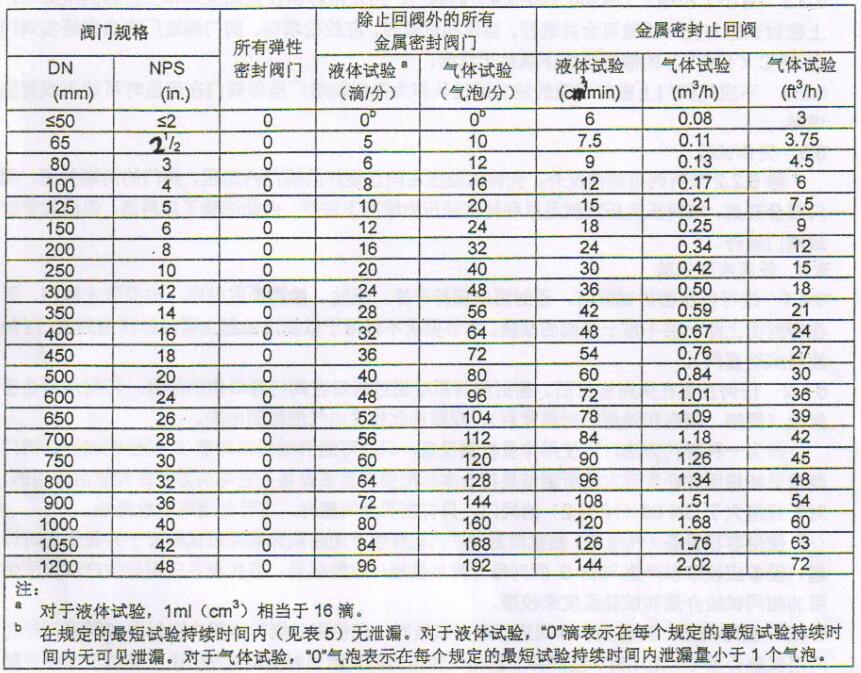 阀门规格 所有弹性密封阀门 除止回阀外的所有金属密封阀门 金属密封止回阀
DN (mm) NPS (in.) 液体试验 a (滴/分) 气体试验 (气泡/分) 液体试验 (cm³/min) 气体试验 (m³/h) 气体试验 (ft³/h)
≤50 ≤2 0 0b 0b 6 0.08 3
65 2 1/2 0 5 10 7.5 0.11 3.75
80 3 0 6 12 9 0.13 4.5
100 4 0 8 16 12 0.17 6
125 5 0 10 20 15 0.21 7.5
150 6 0 12 24 18 0.25 9
200 8 0 16 32 24 0.34 12
250 10 0 20 40 30 0.42 15
300 12 0 24 48 36 0.50 18
350 14 0 28 56 42 0.59 21
400 16 0 32 64 48 0.67 24
450 18 0 36 72 54 0.76 27
500 20 0 40 80 60 0.84 30
600 24 0 48 96 72 1.01 36
650 26 0 52 104 78 1.09 39
700 28 0 56 112 84 1.18 42
750 30 0 60 120 90 1.26 45
800 32 0 64 128 96 1.34 48
900 36 0 72 144 108 1.51 54
1000 40 0 80 160 120 1.68 60
1050 42 0 84 168 126 1.76 63
1200 48 0 96 192 144 2.02 72
注:
a 对于液体试验，1ml（cm³）相当于 16 滴。
b 在规定的最短试验持续时间内（见表 5）无泄漏。对于液体试验，“0”滴表示在每个规定的最短试验持续时
间内无可见泄漏。对于气体试验，“0”气泡表示在每个规定的最短试验持续时间内泄漏量小于 1 个气泡。